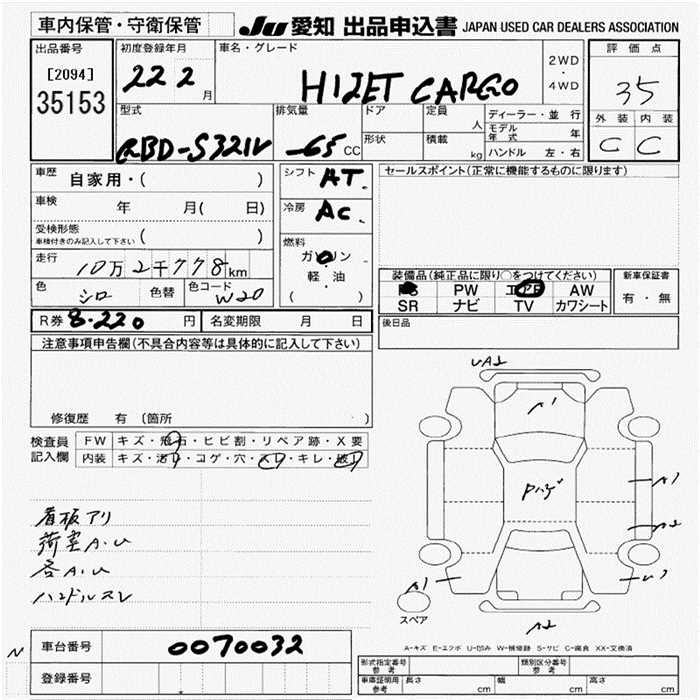 車内保管・守衛保管
JU 愛知 出品申込書 JAPAN USED CAR DEALERS ASSOCIATION
出品番号
[2094]
35153
初度登録年月
22 2 月
車名・グレード
HIJET CARGO
2WD
・
4WD
評価点
35
外装 内装
C C
型式
GBD-S321V
排気量
65 CC
ドア
形状
定員
人
積載
kg
ディーラー・並行
モデル年式 年
ハンドル 左・右
車歴 自家用・( )
車検 年 月( 日)
受検形態
車検付きのみ記入して下さい ( )
走行 10万2千778km
色 シロ 色替 色コード W20
シフト AT
冷房 AC
燃料
ガソリン
軽・油
( )
セールスポイント(正常に機能するものに限ります)
装備品(純正品に限り○をつけてください)
PS PW エアB AW
SR ナビ TV カワシート
新車保証書
有・無
R券 8.220 円 名変期限 月 日
後日品
注意事項申告欄(不具合内容等は具体的に記入して下さい)
修復歴 有 (箇所 )
検査員
記入欄
FW キズ・飛石・ヒビ割・リペア跡・X要
内装 キズ・汚れ・コゲ・穴・スレ・キレ・破れ
看板アリ
荷室A.U
各A.U
ハンドルスレ
UA2
A1
Pハゲ
A1
A2
A1
U1
A2
スペア
A-キズ E-エクボ U-凹み W-補修跡 S-サビ C-腐食 XX-交換済
N
車台番号 0070032
登録番号
形式指定番号
参考
類別区分番号
参考
車庫証明用
参考
長さ cm 幅 cm 高さ cm